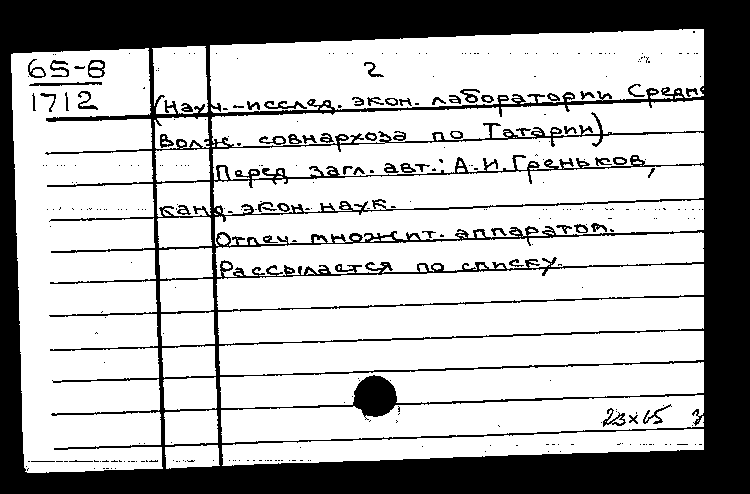 65-8
1712
2
(Науч.-исслед. экон. лаборатории Средне
Волж. совнархоза по Татарии)
Перед загл. авт.: А.И.Греньков,
канд. экон. наук.
Отпеч. множит. аппаратом.
Рассылается по списку.